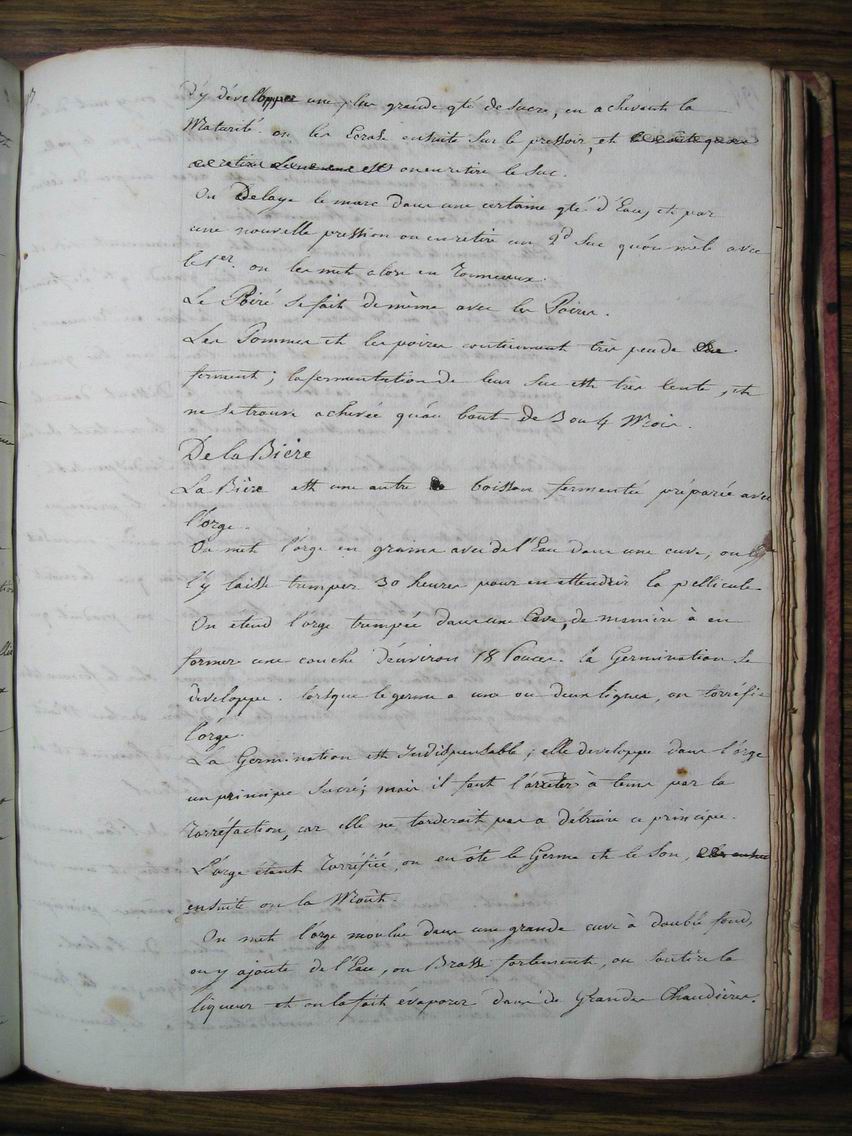 d'y développer une plus grande qté de sucre, en achevant la
Maturité. on les Ecrase ensuite sur le pressoir, et
on en retire le suc.
On Delaye le marc dans une certaine qté d'Eau, et par
une nouvelle pression on en retire un 2d Suc qu'on mêle avec
le 1er. on les met alors en Tonneaux.
Le Poiré se fait de même avec les Poires.
Les Pommes et les poires contiennent très peu de
ferment; la fermentation de leur suc est très lente, et
ne se trouve achevée qu'au bout de 3 ou 4 Mois.
De la Bière
La Bière est une autre boisson fermentée préparée avec
l'orge.
On met l'orge en grains avec de l'Eau dans une cuve, on
l'y laisse tremper 30 heures pour en attendrir la pellicule
On etend l'orge trempée dans une Cave, de manière à en
former une couche d'environ 18 Pouces. la Germination se
developpe. lorsque le germe a une ou deux lignes, on torréfie
l'orge.
La Germination est Indispensable; elle developpe dans l'orge
un principe Sucré; mais il faut l'arrêter à tems par la
Torréfaction, car elle ne tarderait pas a détruire ce principe.
L'orge étant Torréfiée, on en ôte le Germe et le Son,
ensuite on la Moût.
On met l'orge moulue dans une grande cuve à double fond,
on y ajoute de l'Eau, on Brasse fortement, on soutire la
liqueur et on la fait évaporer dans de Grandes Chaudières.